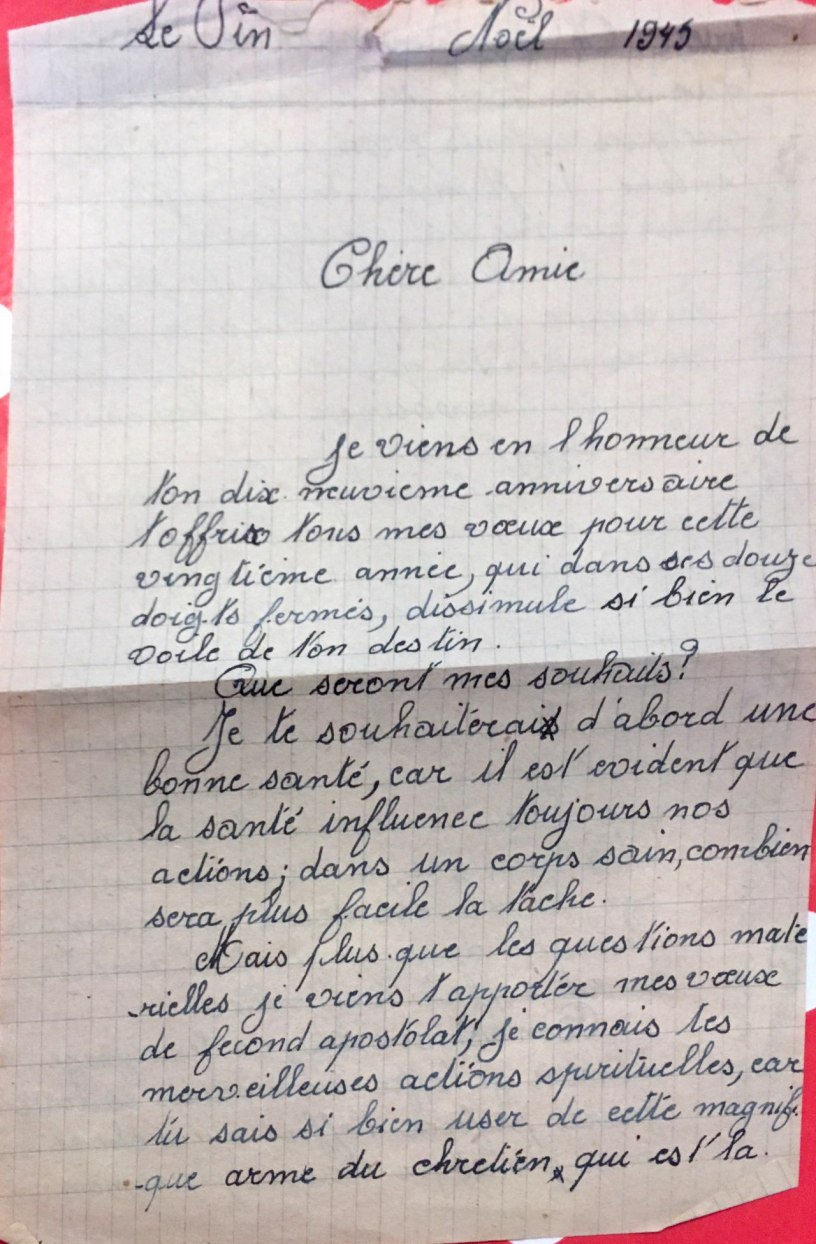 Le Pin Noël 1945
Chère Amie
Je viens en l honneur de
ton dix neuvieme anniversaire
t offrir tous mes vœux pour cette
vingtième année, qui dans ses douze
doigts fermés, dissimule si bien le
voile de ton destin.
Que seront mes souhaits?
Je te souhaiterai d'abord une
bonne santé, car il est evident que
la santé influence toujours nos
actions; dans un corps sain, combien
sera plus facile la tache.
Mais plus que les questions maté
-rielles je viens t apporter mes vœux
de fecond apostolat, je connais tes
merveilleuses actions spirituelles, car
tu sais si bien user de cette magnifi
-que arme du chretien, qui est la